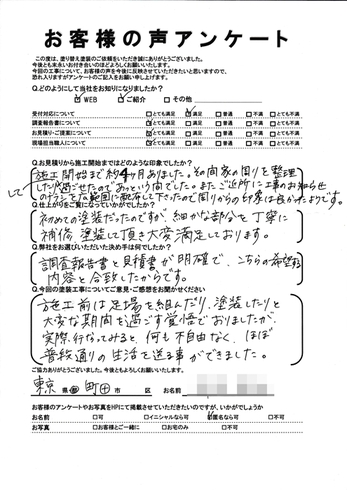 お客様の声アンケート
この度は、塗り替え塗装のご依頼をいただき誠にありがとうございました。
今後とも末永いお付き合いのほどよろしくお願いいたします。
今回の工事について、お客様の声を今後に反映させていただきたいと思いますので、
恐れ入りますがアンケートのご記入をお願い申し上げます。
Q.どのようにして当社をお知りになりましたか?
☑WEB ☑ご紹介 □その他
受付対応について □とても満足 ☑満足 □普通 □不満 □とても不満
調査報告書について ☑とても満足 □満足 □普通 □不満 □とても不満
お見積り・ご提案について ☑とても満足 □満足 □普通 □不満 □とても不満
現場担当職人について ☑とても満足 □満足 □普通 □不満 □とても不満
Q.お見積りから施工開始まではどのような印象でしたか?
施工開始まで約4ヶ月ありました。その間家の周りを整理
して
したり過ごせたのであっという間でした。またご近所に工事のお知らせ
のチラシを広範囲に配布して下さったので周りからの印象は良かったようです。
Q.仕上がりをご覧になっていかがでしたか?
初めての塗装だったのですが、細かな部分を丁寧に
補修、塗装して頂き大変満足しております。
Q.弊社をお選びいただいた決め手は何でしたか?
調査報告書と見積書が明確で、こちらの希望する
内容と合致したからです。
Q.今回の塗装工事についてご意見・ご感想をお聞かせください
施工前は足場を組んだり、塗装したりと
大変な期間を過ごす覚悟でおりましたが、
実際行なってみると、何も不自由なく、ほぼ
普段通りの生活を送る事ができました。
ご協力ありがとうございました。今後ともよろしくお願いいたします。
東京 県 都 町田 市 区 お名前
お客様のアンケートやお写真をHPにて掲載させていただきたいのですが、いかがでしょうか
お名前 □可 □イニシャルなら可 ☑匿名なら可 □不可
お写真 □お客様とご一緒に □お宅のみ □不可